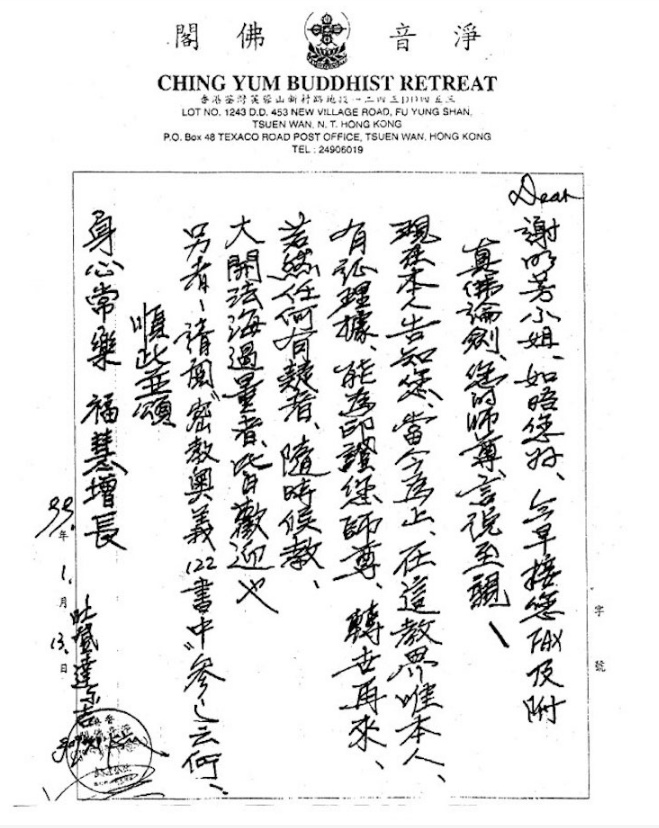 閣 佛 音 淨
CHING YUM BUDDHIST RETREAT
香港荃灣芙蓉山新村路地段一二四三DD四五三
LOT NO. 1243 D.D. 453 NEW VILLAGE ROAD, FU YUNG SHAN,
TSUEN WAN, N. T. HONG KONG
P.O. Box 48 TEXACO ROAD POST OFFICE, TSUEN WAN, HONG KONG
TEL : 24906019
字號
Dear
謝明芳小姐、如晤您好、今早接您FAX及附
真佛論劍、您的師尊、言說至親、
現在本人告知您、當今為止、在這教界唯本人、
有証理據、能為印證您師尊、轉古再來、
若然任何有疑者、隨時候教、
大開法海過量者、皆自歡迎也
另者、請閱"密教奧義122書中"參之云何、
順此並頌
身心常樂 福慧增長
99年1月13日
吐登達尔吉